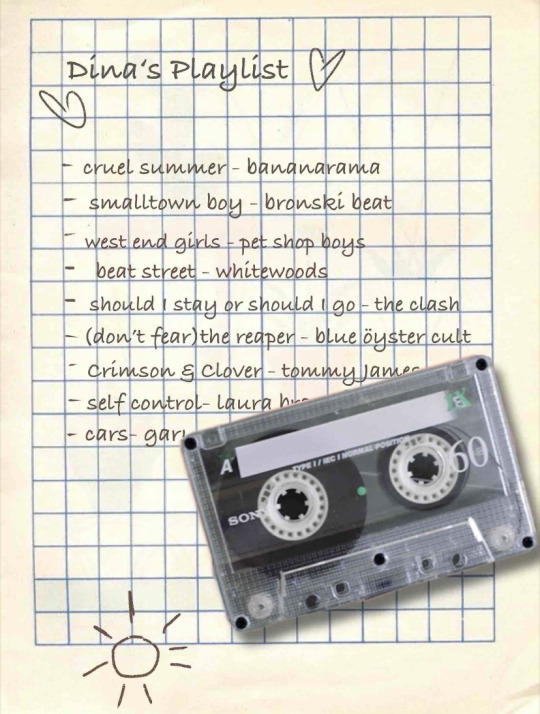 Dina's Playlist
- cruel summer - bananarama
- smalltown boy - bronski beat
- west end girls - pet shop boys
- beat street - whitewoods
- should I stay or should I go - the clash
- (don't fear)the reaper - blue öyster cult
- Crimson & Clover - tommy James
- self control- laura
- cars-
A
TYPE I / IEC I NORMAL POSITION
60
SONY